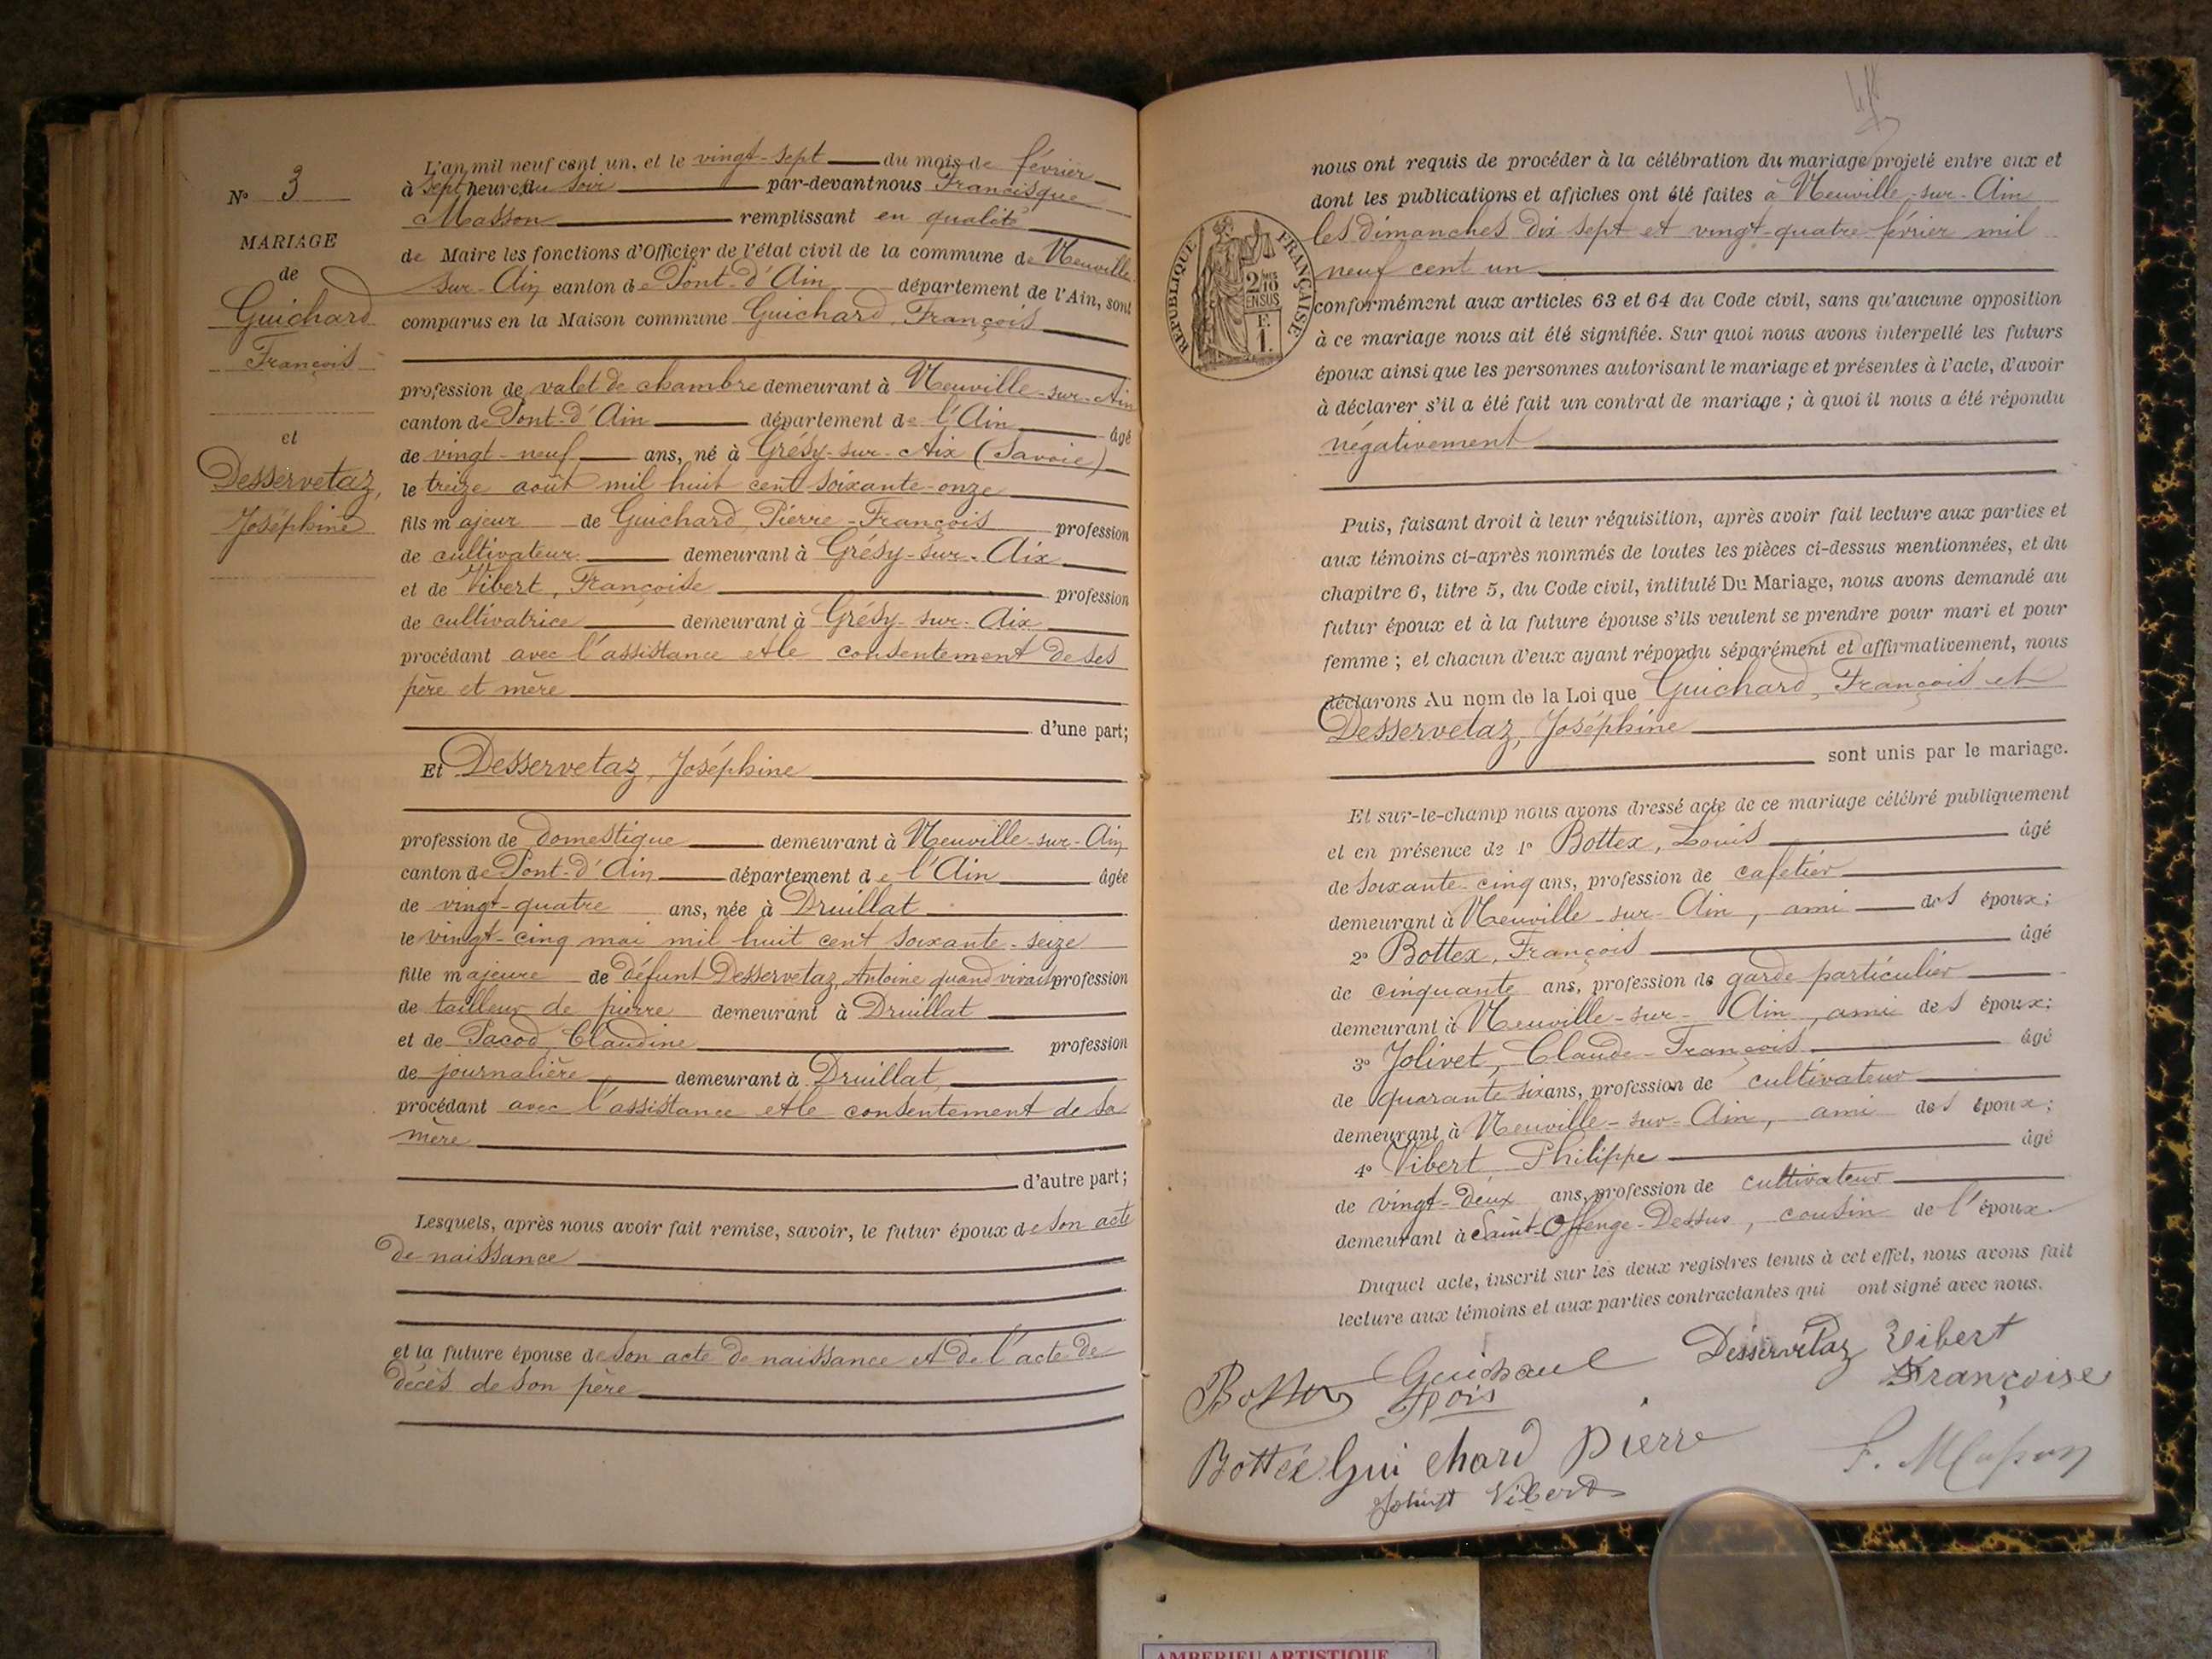 N° 3
MARIAGE
de
Guichard
François
et
Desservetaz,
Joséphine
L'an mil neuf cent un, et le vingt-sept du mois de février
à sept heures du soir par-devant nous Francisque
Masson remplissant en qualité
de Maire les fonctions d'Officier de l'état civil de la commune de Neuville
sur-Ain canton de Pont-d'Ain département de l'Ain, sont
comparus en la Maison commune Guichard, François
profession de valet de chambre demeurant à Neuville-sur-Ain
canton de Pont-d'Ain département de l'Ain âgé
de vingt-neuf ans, né à Grésy-sur-Aix (Savoie)
le treize août mil huit cent soixante-onze
fils majeur de Guichard, Pierre-François profession
de cultivateur demeurant à Grésy-sur-Aix
et de Vibert, Françoise profession
de cultivatrice demeurant à Grésy-sur-Aix
procédant avec l'assistance et le consentement de ses
père et mère
d'une part;
Et Desservetaz, Joséphine
profession de domestique demeurant à Neuville-sur-Ain
canton de Pont-d'Ain département de l'Ain âgée
de vingt-quatre ans, née à Druillat
le vingt-cinq mai mil huit cent soixante-seize
fille majeure de défunt Desservetaz, Antoine quand vivait profession
de tailleur de pierre demeurant à Druillat
et de Pacod, Claudine profession
de journalière demeurant à Druillat
procédant avec l'assistance et le consentement de sa
mère
d'autre part;
Lesquels, après nous avoir fait remise, savoir, le futur époux de son acte
de naissance
et la future épouse de son acte de naissance et de l'acte de
décès de son père
nous ont requis de procéder à la célébration du mariage projeté entre eux et
dont les publications et affiches ont été faites à Neuville-sur-Ain
les dimanches dix sept et vingt-quatre février mil
neuf cent un
RÉPUBLIQUE FRANÇAISE
2/10
EN SUS
F.
1.
conformément aux articles 63 et 64 du Code civil, sans qu'aucune opposition
à ce mariage nous ait été signifiée. Sur quoi nous avons interpellé les futurs
époux ainsi que les personnes autorisant le mariage et présentes à l'acte, d'avoir
à déclarer s'il a été fait un contrat de mariage; à quoi il nous a été répondu
négativement
Puis, faisant droit à leur réquisition, après avoir fait lecture aux parties et
aux témoins ci-après nommés de toutes les pièces ci-dessus mentionnées, et du
chapitre 6, titre 5, du Code civil, intitulé Du Mariage, nous avons demandé au
futur époux et à la future épouse s'ils veulent se prendre pour mari et pour
femme; et chacun d'eux ayant répondu séparément et affirmativement, nous
déclarons Au nom de la Loi que Guichard, François et
Desservetaz, Joséphine
sont unis par le mariage.
Et sur-le-champ nous avons dressé acte de ce mariage célébré publiquement
et en présence de 1° Bottex, Louis âgé
de soixante-cinq ans, profession de cafetier
demeurant à Neuville-sur-Ain, ami des époux;
2° Bottex, François âgé
de cinquante ans, profession de garde particulier
demeurant à Neuville-sur-Ain, ami des époux;
3° Jolivet, Claude-François âgé
de quarante six ans, profession de cultivateur
demeurant à Neuville-sur-Ain, ami des époux;
4° Vibert Philippe âgé
de vingt-deux ans, profession de cultivateur
demeurant à Saint-Offenge-Dessus, cousin de l'époux
Duquel acte, inscrit sur les deux registres tenus à cet effet, nous avons fait
lecture aux témoins et aux parties contractantes qui ont signé avec nous.
Guichard Desservetaz Vibert
Françoise
Guichard Pierre F. Masson
Vibert
AMBERIEU ARTISTIQUE